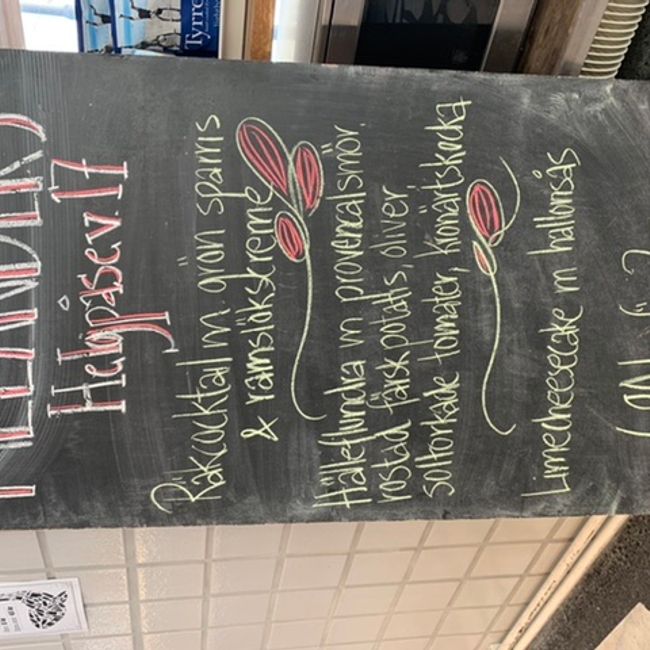 Helgpåse v.17
Räkcocktail m. grön sparris
& ramslökskreme
Hälleflundra m provencalsmör,
rostad färskpotatis, oliver
soltorkade tomater, kronärtskocka
Limecheesecake m hallonsås